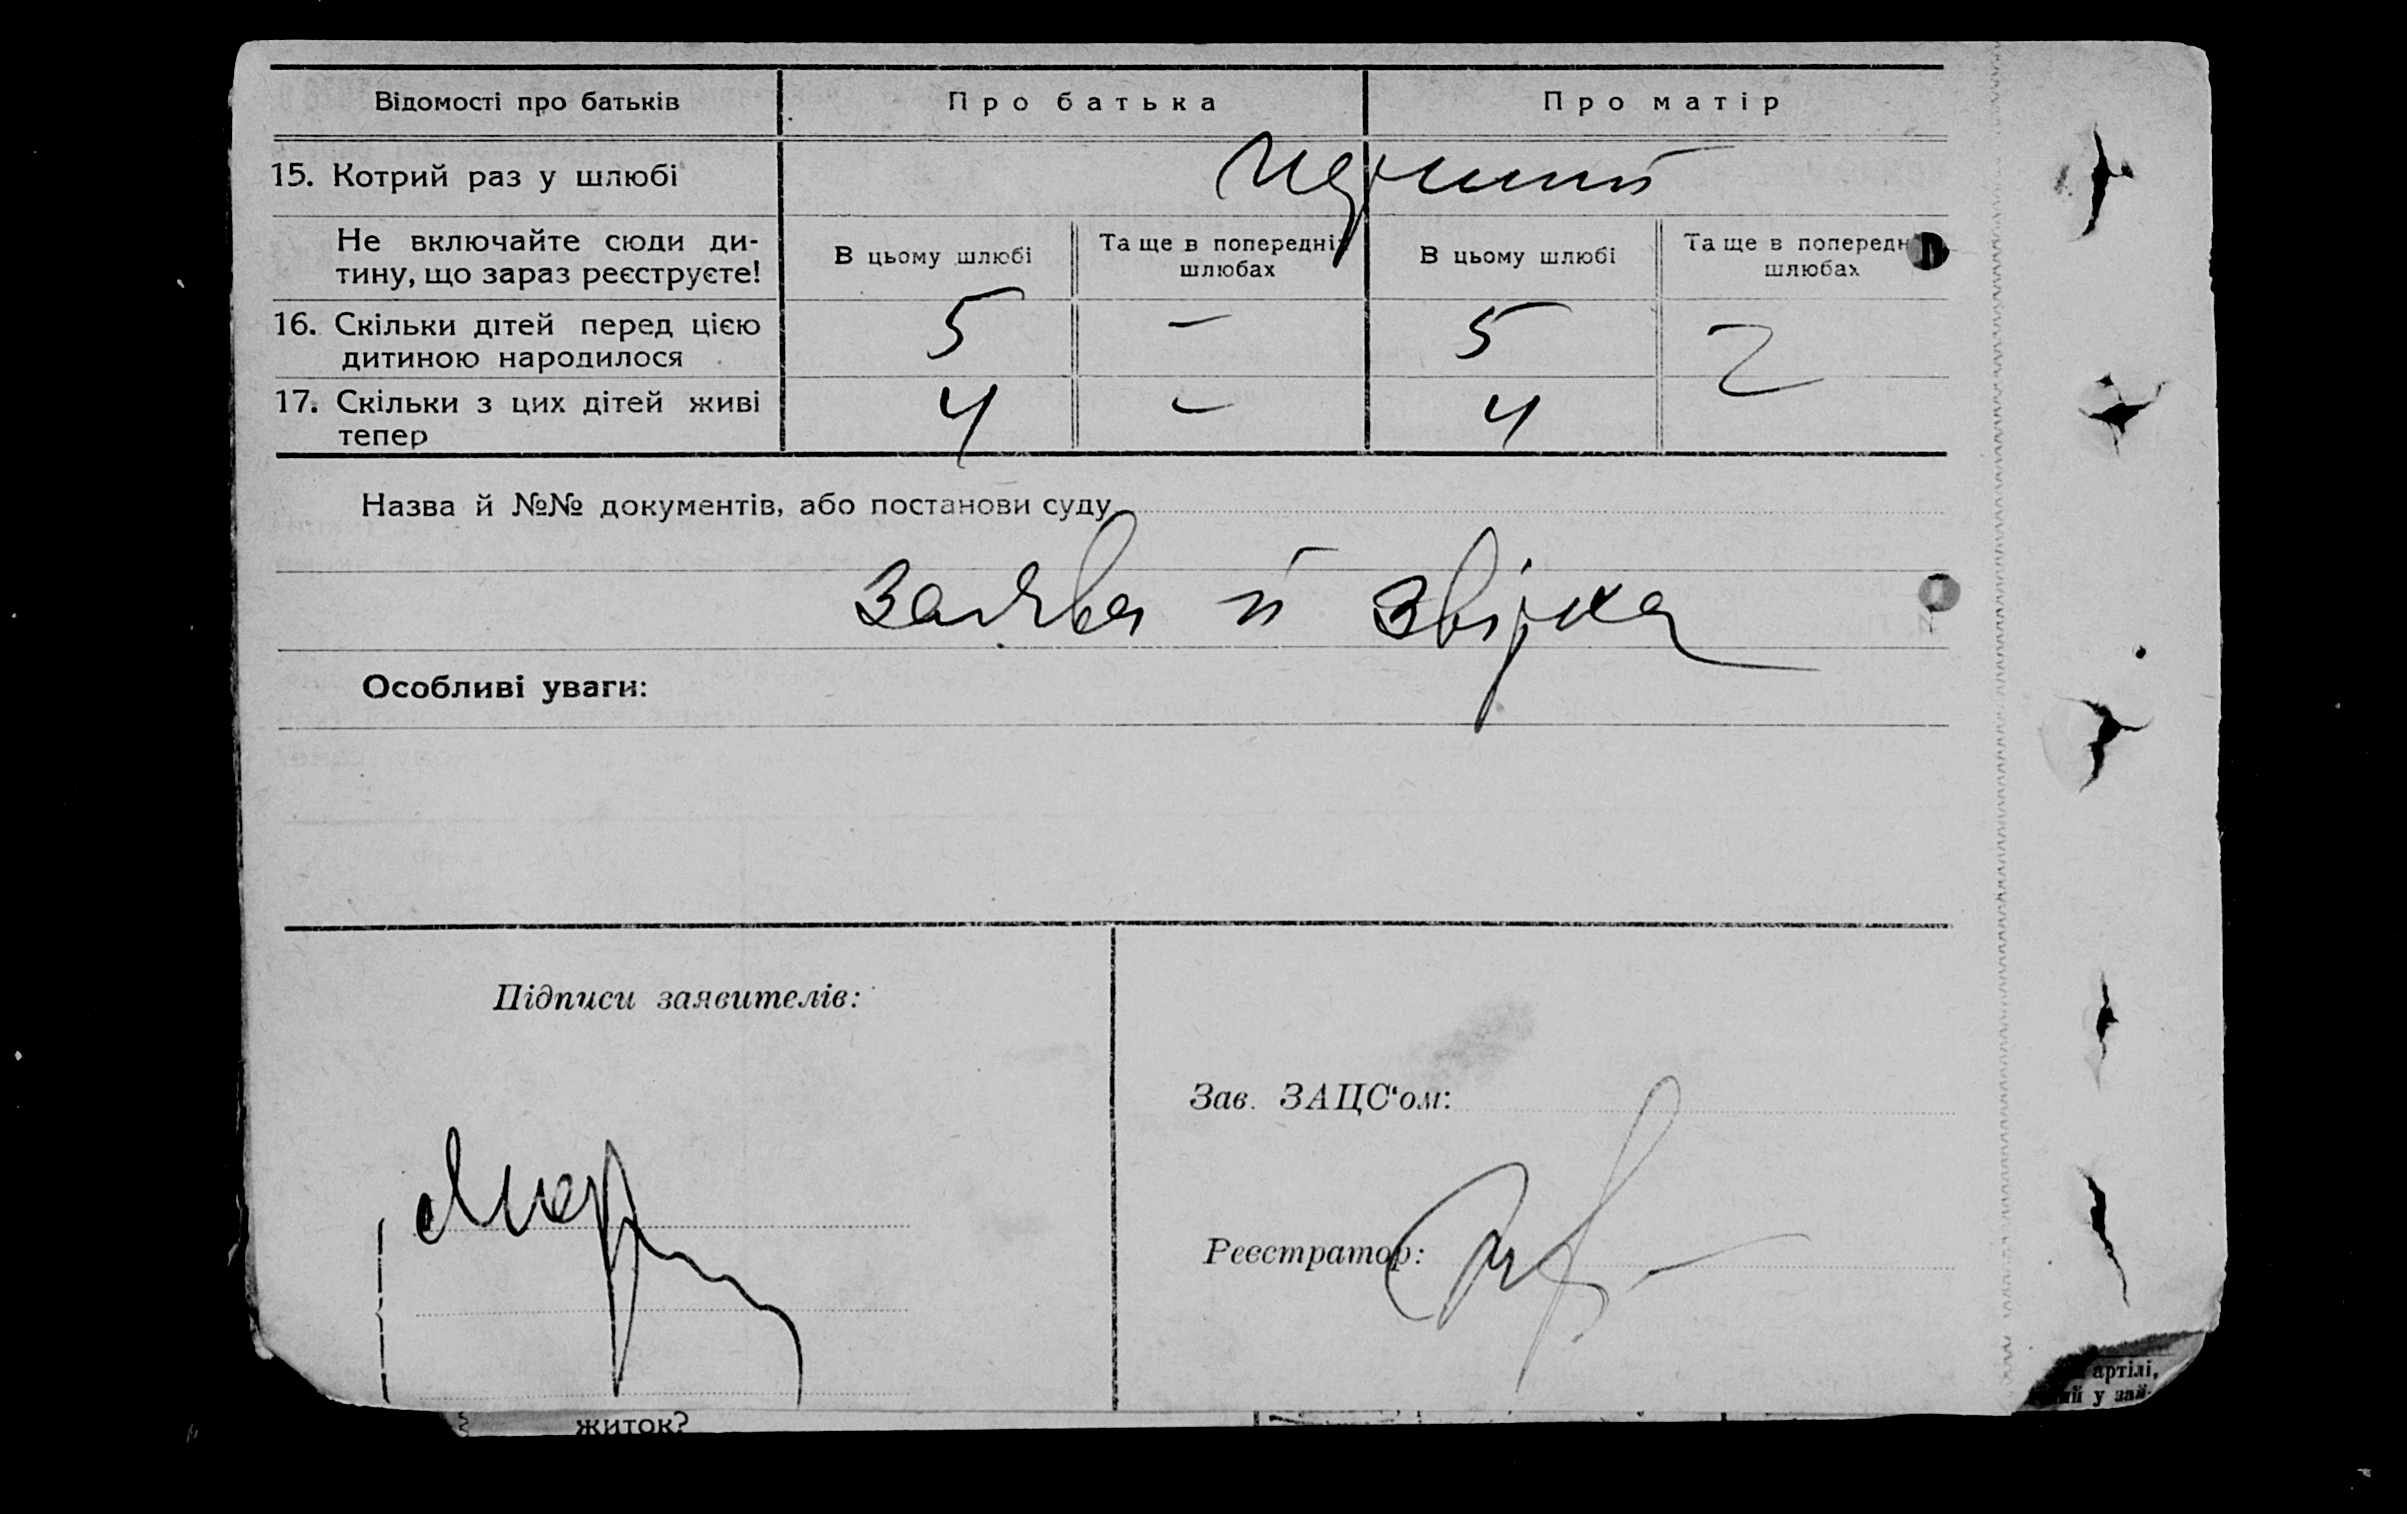 Відомості про батьків Про батька Про матір
15. Котрий раз у шлюбі перший
Не включайте сюди ди-
тину, що зараз реєструєте!
В цьому шлюбі Та ще в попередніх В цьому шлюбі Та ще в попередн
шлюбах шлюбах
16. Скільки дітей перед цією
дитиною народилося
5 – 5 2
17. Скільки з цих дітей живі
тепер
4 – 4
Назва й №№ документів, або постанови суду
заява й звірка
Особливі уваги:
Підписи заявителів:
Зав. ЗАЦС‘ом:
Реєстратор:
артілі,
ий у зай-
житок?